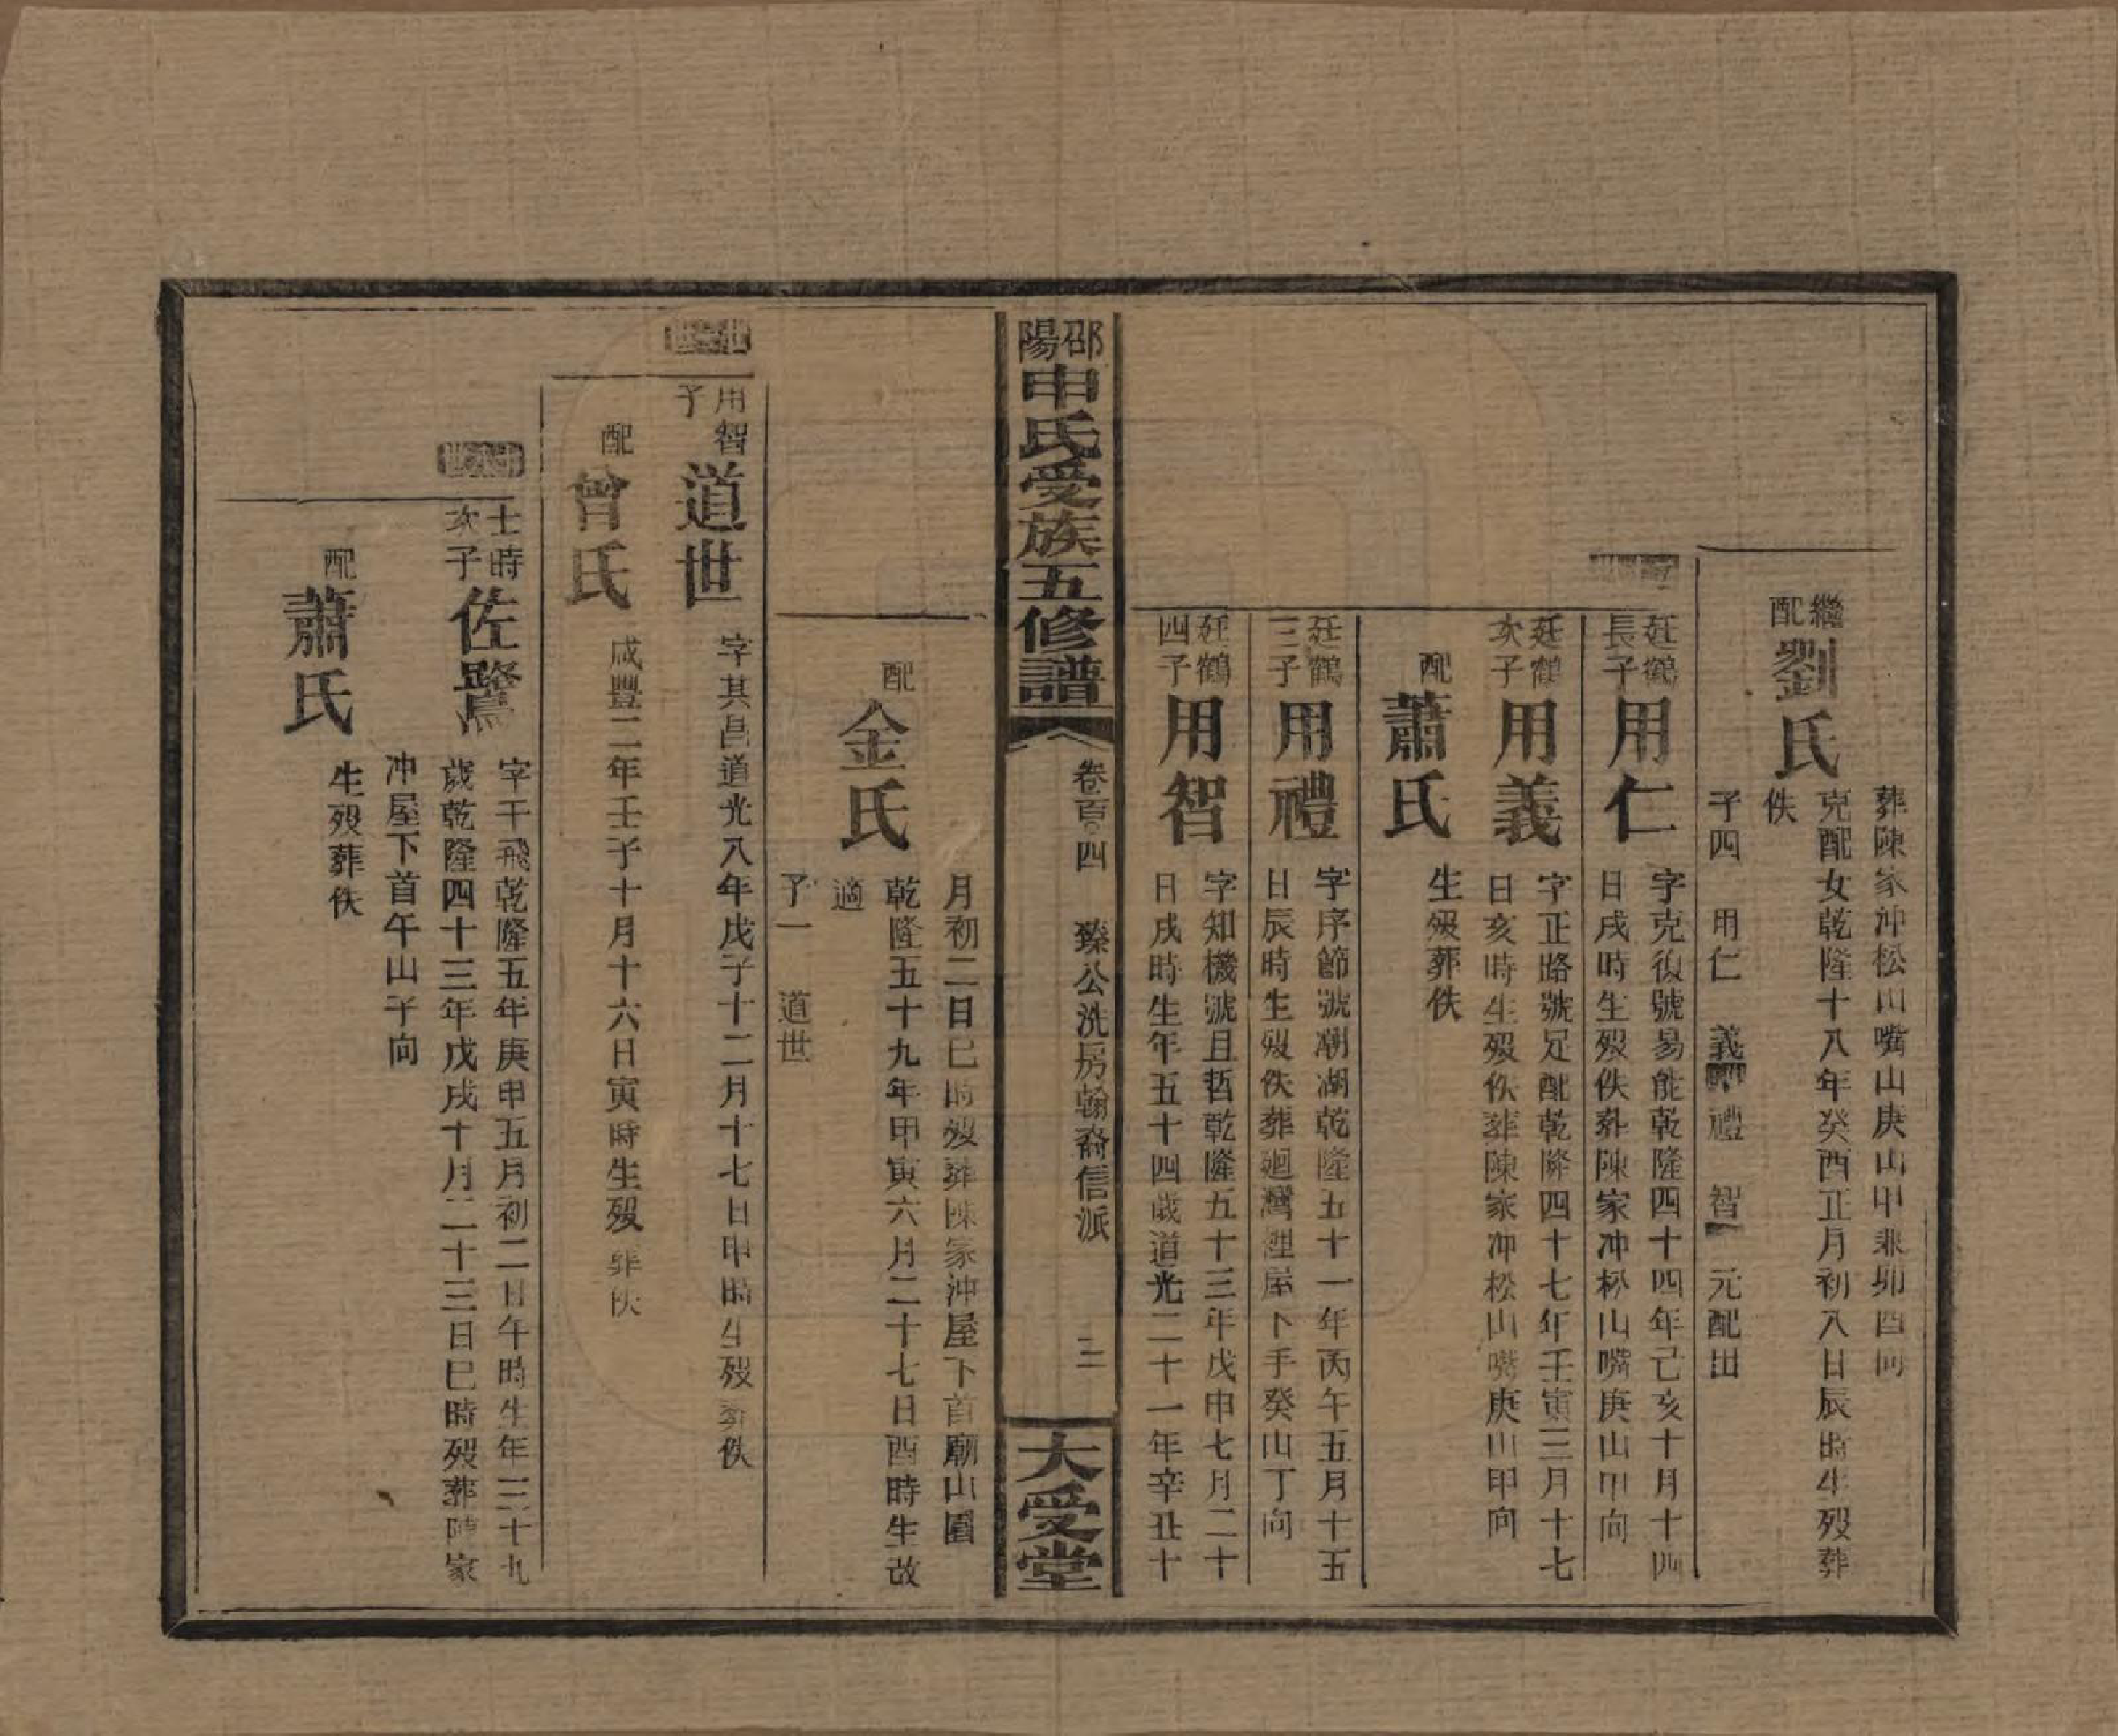 葬陳家冲松山嘴山庚山甲兼卯酉向
繼配劉氏
克配女乾隆十八年癸酉正月初八日辰時生歿葬
佚
子四 用仁 義 禮 智 元配出
廷鶴長子用仁
字克復號易能乾隆四十四年己亥十月十四
日戌時生歿佚葬陳家冲松山嘴庚山甲向
廷鶴次子用義
字正路號足配乾隆四十七年壬寅三月十七
日亥時生歿佚葬陳家冲松山嘴庚山甲向
配蕭氏
生歿葬佚
廷鶴三子用禮
字序節號潮湖乾隆五十一年丙午五月十五
日辰時生歿佚葬廻灣裡屋下手癸山丁向
廷鶴四子用智
字知機號且哲乾隆五十三年戊申七月二十
日戌時生年五十四歲道光二十一年辛丑十
邵陽申氏受族五修譜 卷百○四 臻公洗房翰裔信派 三 大受堂
月初二日巳時歿葬陳家沖屋下首廟山園
配金氏
乾隆五十九年甲寅六月二十七日酉時生改
適
子一 道世
用智子道世
字其昌道光八年戊子十二月十七日申時生歿葬佚
配曾氏
咸豐二年壬子十月十六日寅時生歿葬佚
士時次子佐鷺
字干飛乾隆五年庚申五月初二日午時生年三十九
歲乾隆四十三年戊戌十月二十三日巳時歿葬陳家
冲屋下首午山子向
配蕭氏
生歿葬佚